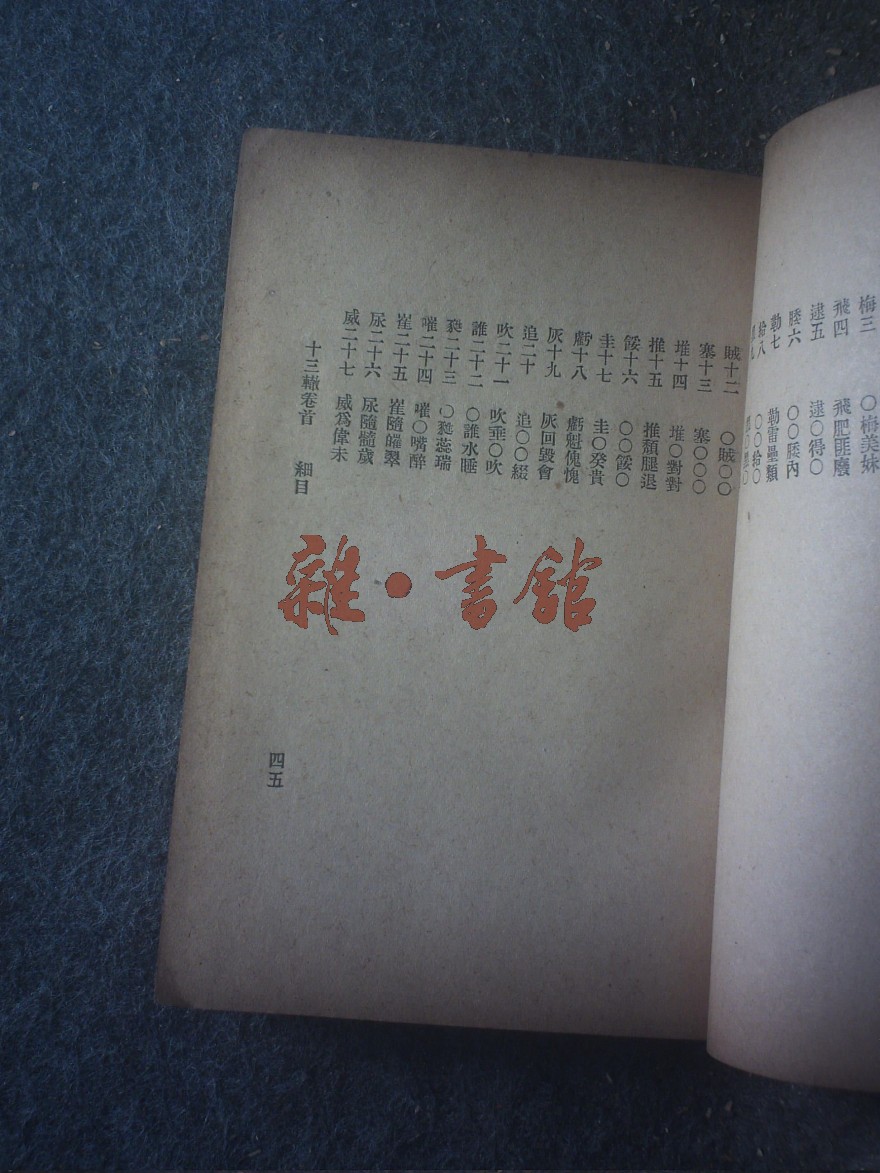 梅三 ○梅美妹
飛四 飛肥匪廢
逮五 逮○得○
勒七 勒雷壘類
給八 ○○給○
賊十二 ○賊○○
塞十三 塞○○○
堆十四 堆○對對
推十五 推頹腿退
餒十六 ○○餒○
圭十七 圭○癸貴
虧十八 虧魁傀愧
灰十九 灰回毀會
追二十 追○○綴
吹二十一 吹垂○吹
誰二十二 ○誰水睡
二十三 蕊瑞
嗺二十四 嗺○嘴醉
崔二十五 崔隨皠翠
尿二十六 尿隨髓歲
威二十七 威爲偉未
十三轍卷首 細目
四五
雜·書館